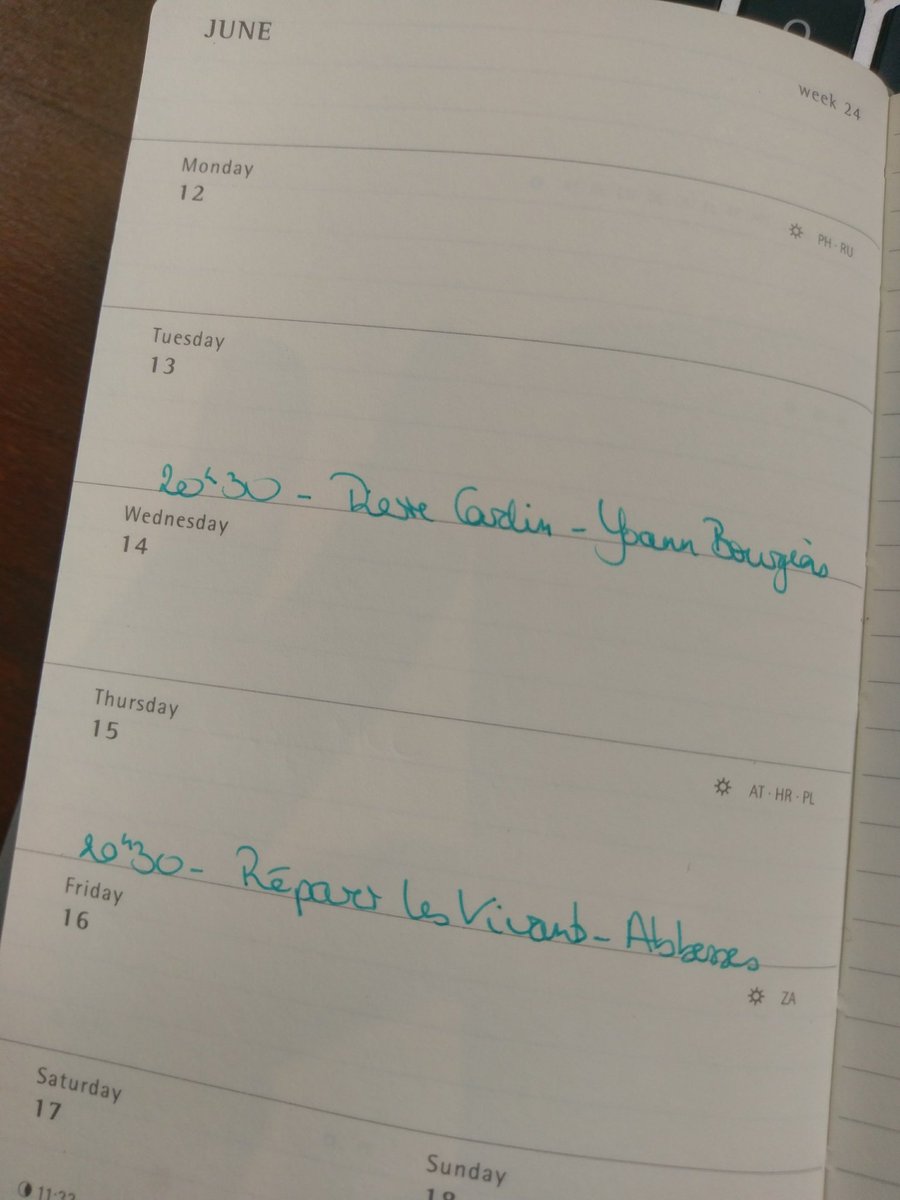 JUNE
week 24
Monday
12
PH · RU
Tuesday
13
20h30 - Pierre Cardin - Yoann Bourgeois
Wednesday
14
Thursday
15
AT · HR · PL
20h30 - Réparer les Vivants - Abbesses
Friday
16
ZA
Saturday
17
Sunday
18
11:33